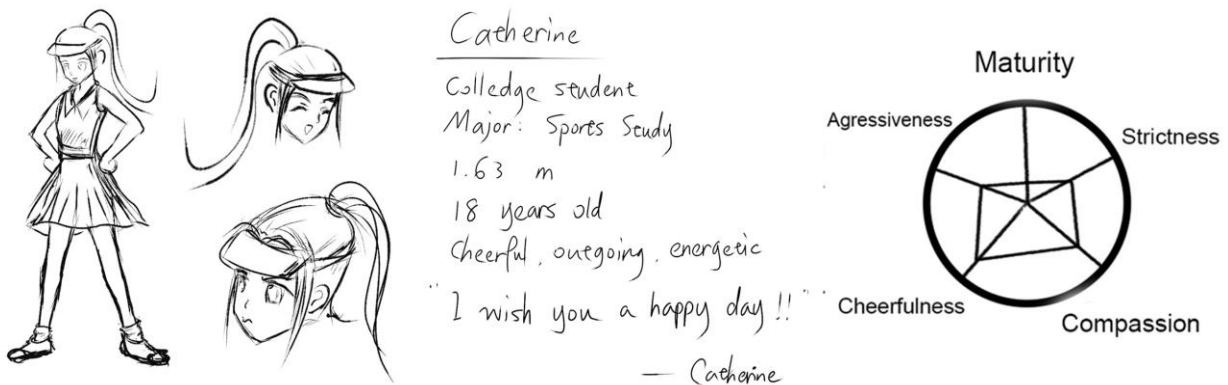 Catherine
Colledge student
Major: Sports Study
1.63 m
18 years old
Cheerful, outgoing, energetic
"I wish you a happy day!!"
— Catherine
Maturity
Agressiveness
Strictness
Cheerfulness
Compassion